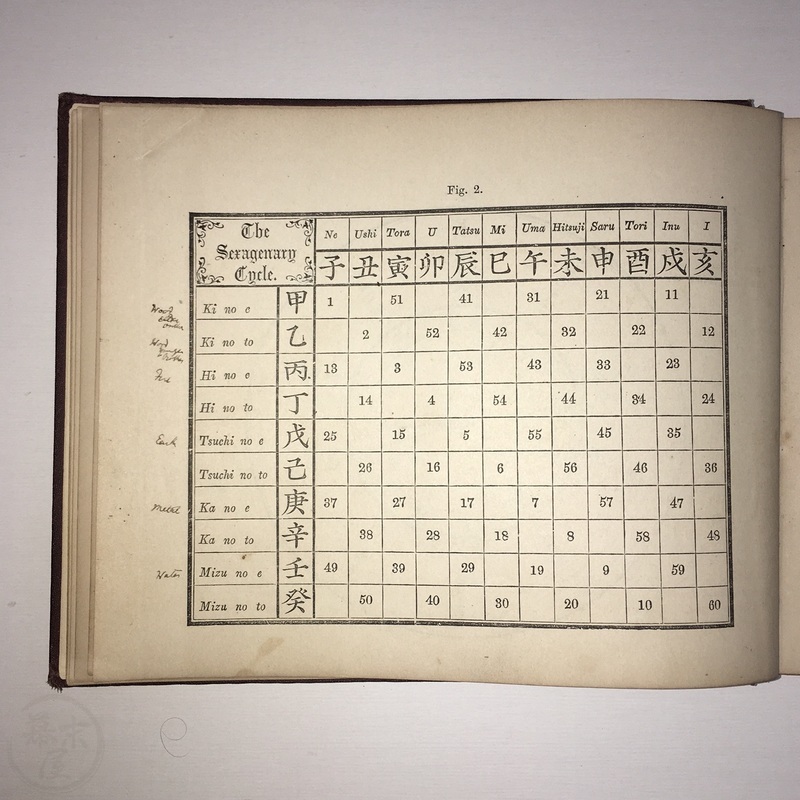 Fig. 2.
The Sexagenary Cycle.
Ne Ushi Tora U Tatsu Mi Uma Hitsuji Saru Tori Inu I
子 丑 寅 卯 辰 巳 午 未 申 酉 戌 亥
Ki no e 甲 1 51 41 31 21 11
Ki no to 乙 2 52 42 32 22 12
Hi no e 丙 13 3 53 43 33 23
Hi no to 丁 14 4 54 44 34 24
Tsuchi no e 戊 25 15 5 55 45 35
Tsuchi no to 己 26 16 6 56 46 36
Ka no e 庚 37 27 17 7 57 47
Ka no to 辛 38 28 18 8 58 48
Mizu no e 壬 49 39 29 19 9 59
Mizu no to 癸 50 40 30 20 10 60
Wood
Fire
Earth
Metal
Water